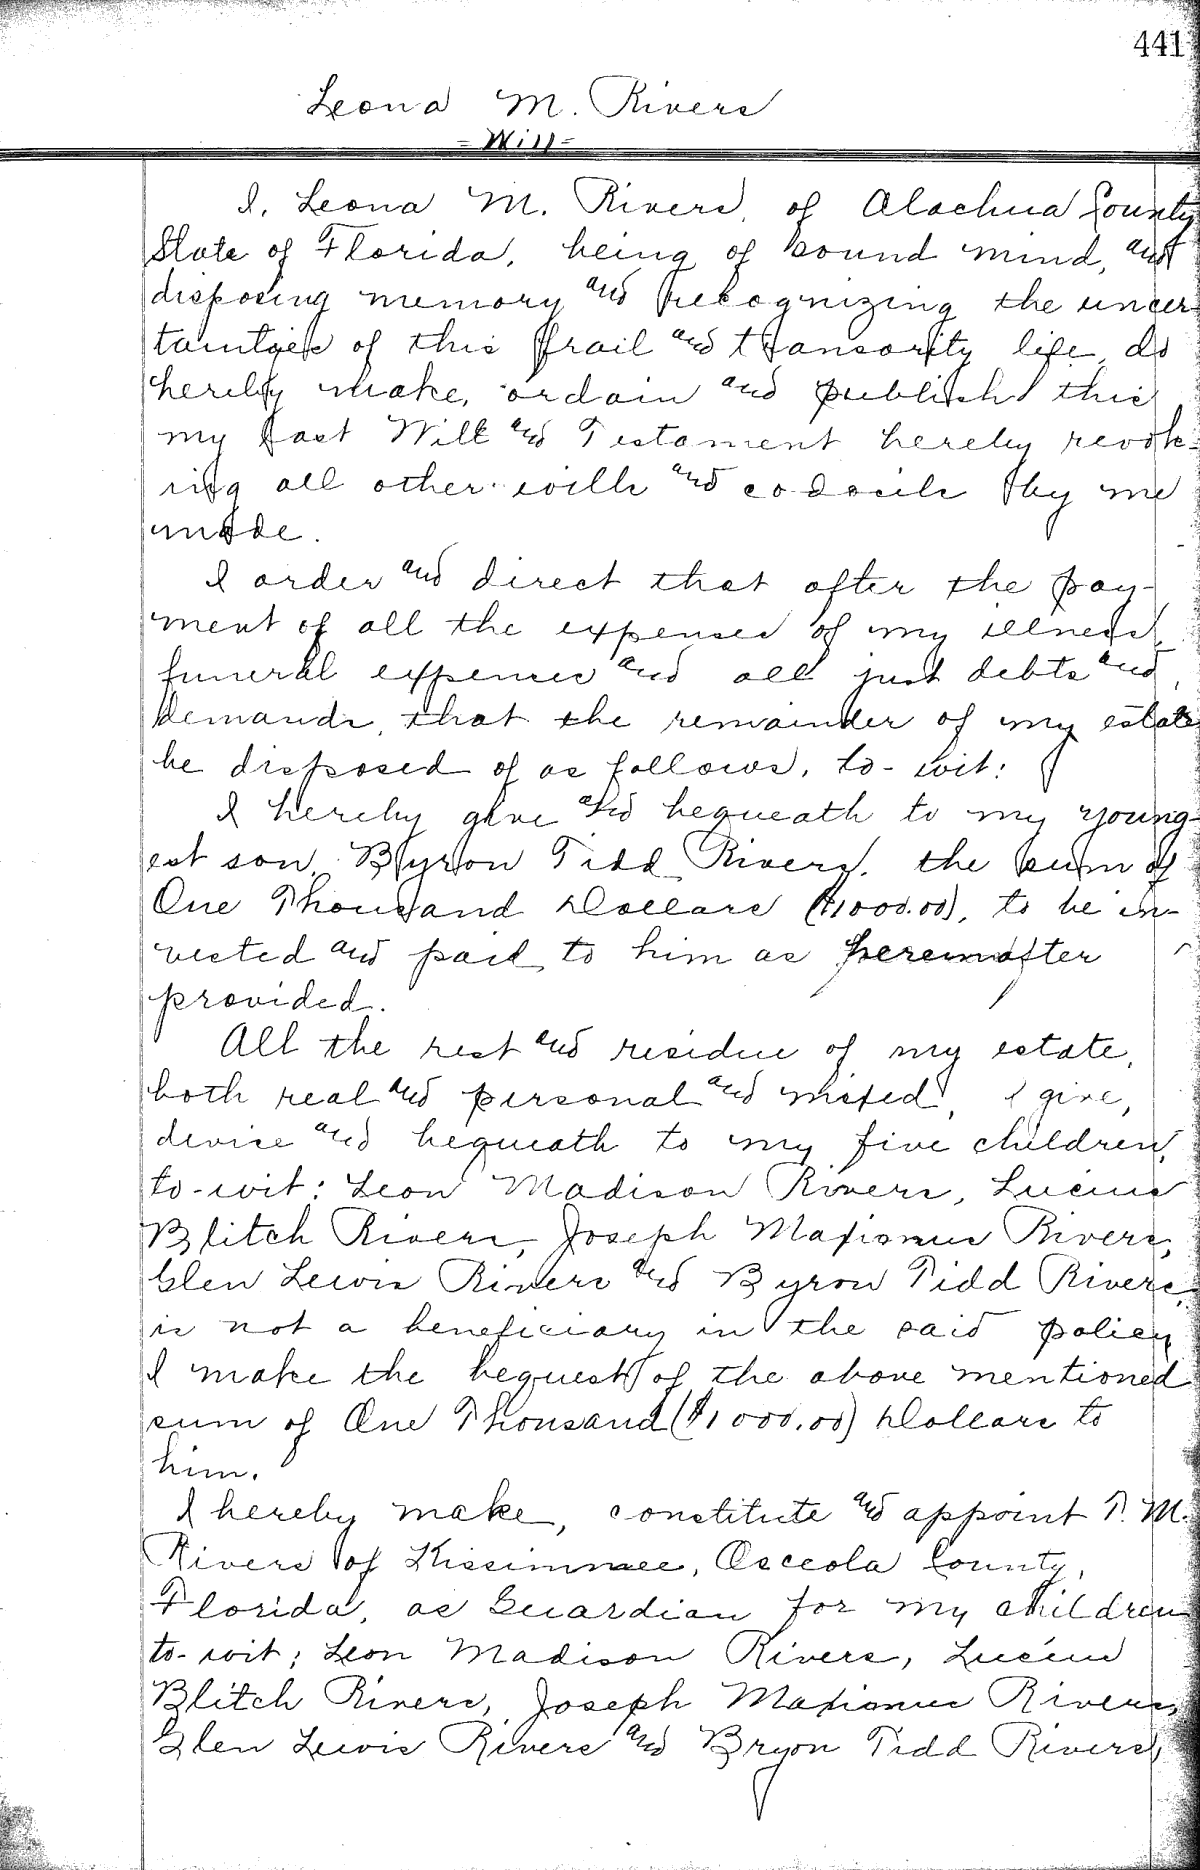 441
Leona M. Rivers
- Will -
I, Leona M. Rivers, of Alachua County
State of Florida, being of sound mind, and
disposing memory and recognizing the uncer-
tainties of this frail and transority life, do
hereby make, ordain and publish this
my last Will and Testament hereby revok-
ring all other wills and codocils by me
made.
I order and direct that after the pay-
ment of all the expenses of my illness,
funeral expenses and all just debts and,
demands, that the remainder of my estate
be disposed of as follows, to-wit:
I hereby give and bequeath to my young-
est son, Byron Tidd Rivers, the sum of
One Thousand Dollars ($1000.00), to be in-
vested and paid to him as hereinafter
provided.
All the rest and residue of my estate,
both real and personal and mixed, I give,
devise and bequeath to my five children,
to-wit: Leon Madison Rivers, Lucius
Blitch Rivers, Joseph Maximus Rivers,
Glen Lewis Rivers and Byron Tidd Rivers,
is not a beneficiary in the said policy
I make the bequest of the above mentioned
sum of One Thousand ($1000.00) Dollars to
him.
I hereby make, constitute and appoint P. M.
Rivers of Kissimmee, Osceola County,
Florida, as Guardian for my children
to-wit; Leon Madison Rivers, Lucius
Blitch Rivers, Joseph Maximus Rivers,
Glen Lewis Rivers and Bryon Tidd Rivers,